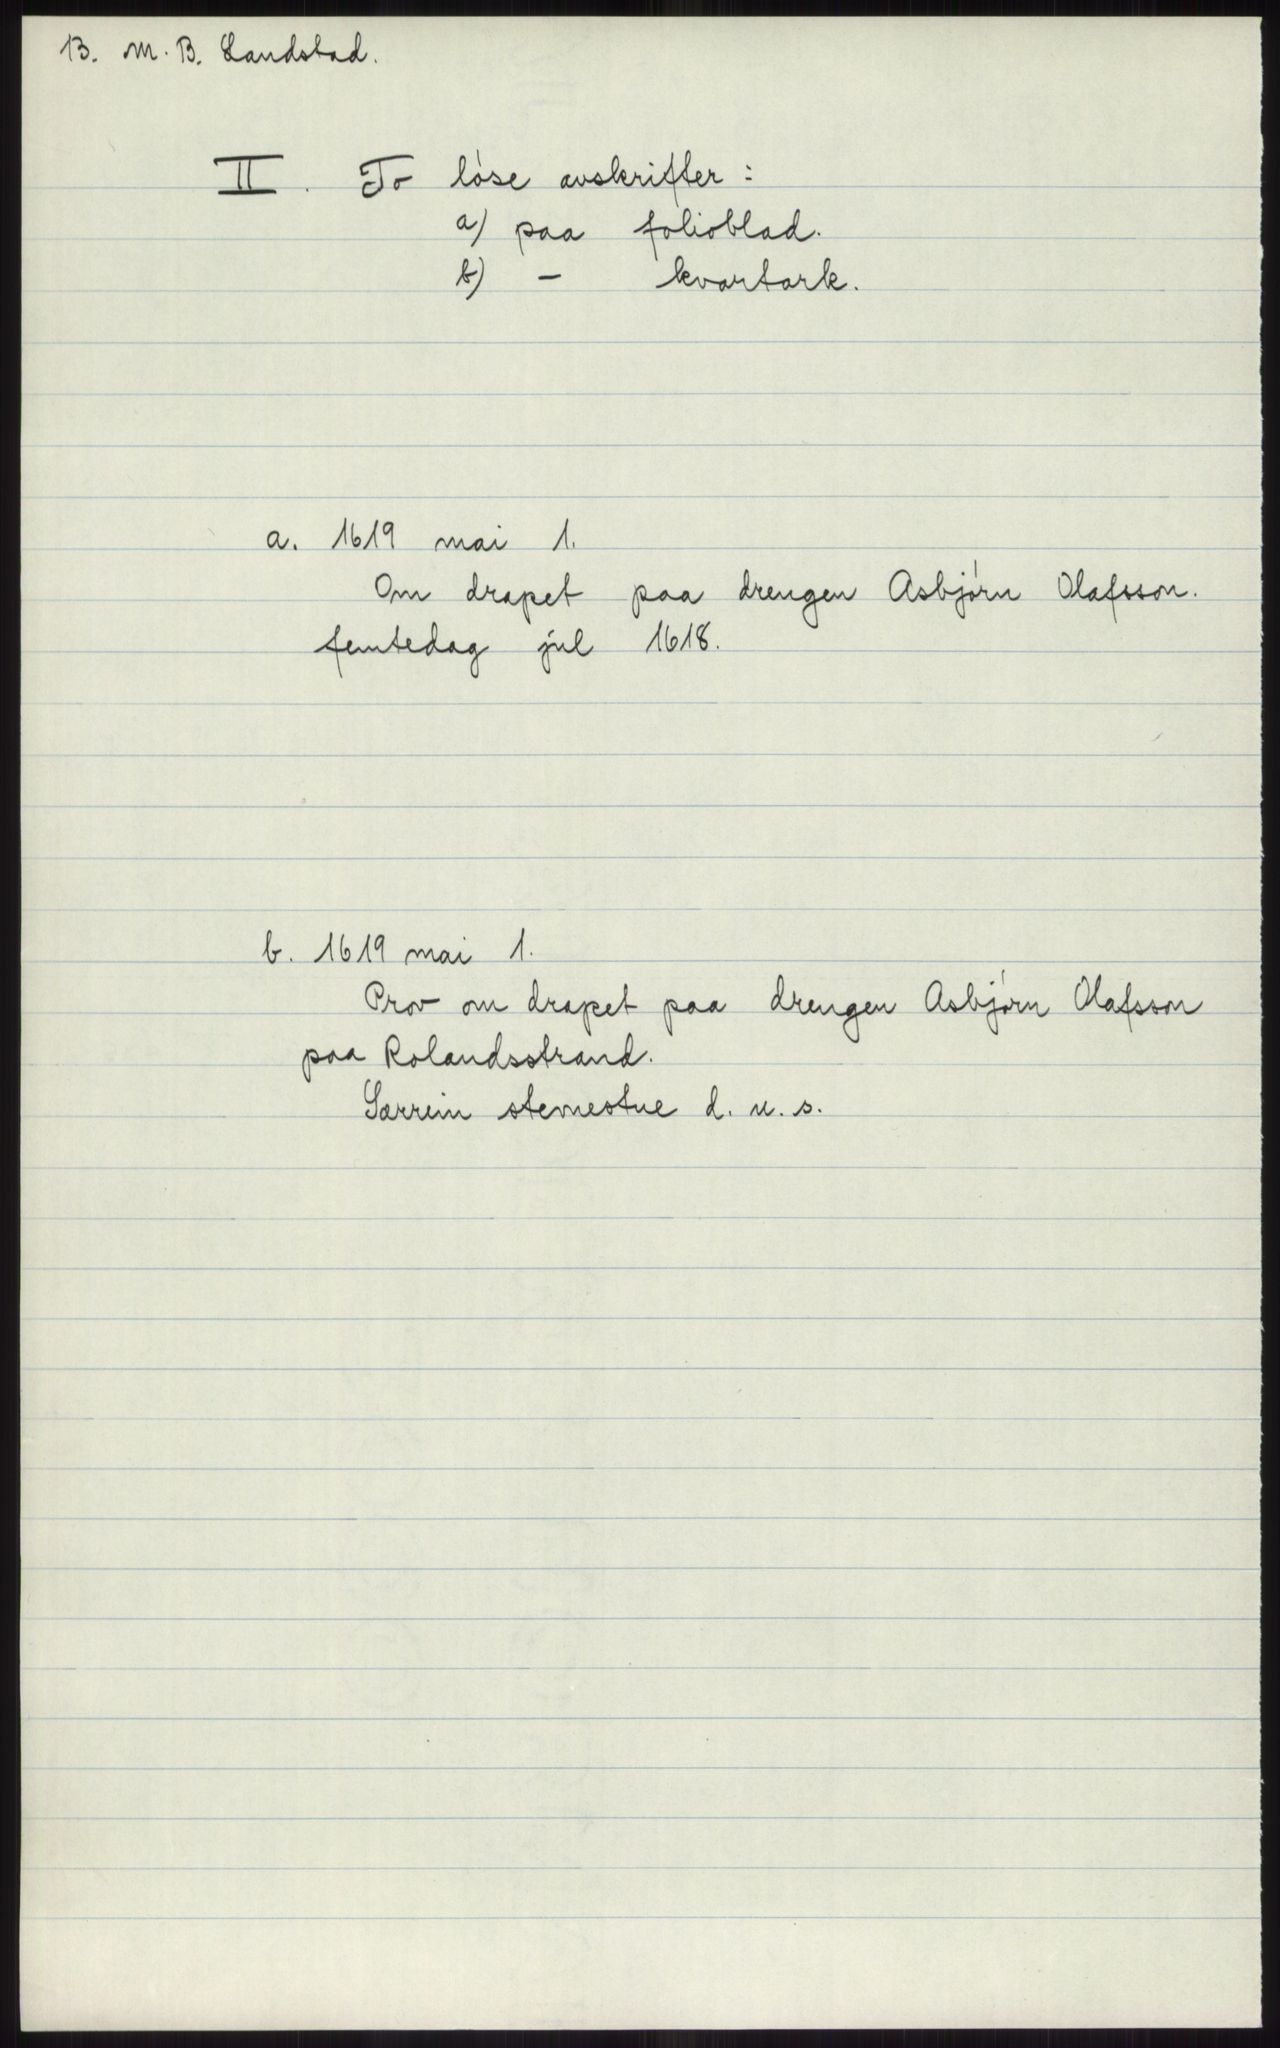 B. M. B. Landstad.
II. To löse avskrifter:
a) paa folioblad.
b) - kvartark.
a. 1619 mai 1.
Om drapet paa drengen Asbjórn Olafsson.
femtedag jul 1618.
b. 1619 mai 1.
Prov om drapet paa drengen Asbjórn Olafsson
paa Rolandsstrand.
stemestue d. u. s.